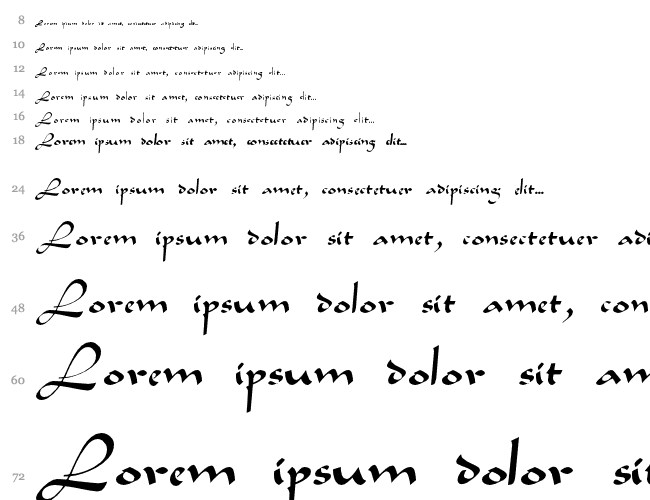 8 Lorem ipsum dolor sit amet, consectetuer adipiscing elit...
10 Lorem ipsum dolor sit amet, consectetuer adipiscing elit...
12 Lorem ipsum dolor sit amet, consectetuer adipiscing elit...
14 Lorem ipsum dolor sit amet, consectetuer adipiscing elit...
16 Lorem ipsum dolor sit amet, consectetuer adipiscing elit...
18 Lorem ipsum dolor sit amet, consectetuer adipiscing elit...
24 Lorem ipsum dolor sit amet, consectetuer adipiscing elit...
36 Lorem ipsum dolor sit amet, consectetuer adi
48 Lorem ipsum dolor sit amet, con
60 Lorem ipsum dolor sit am
72 Lorem ipsum dolor sit